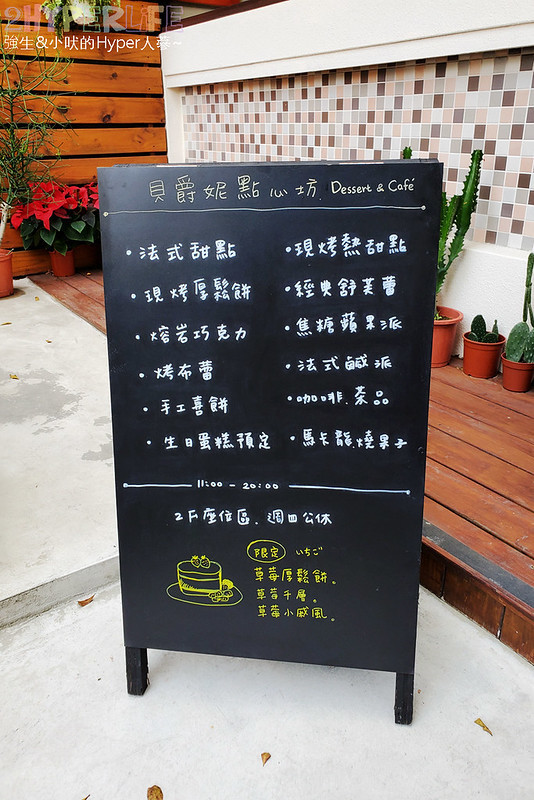 2HYPERLIFE
強生&小吠的Hyper人蔘~
貝爵妮點心坊. Dessert & Café
• 法式甜點
• 現烤厚鬆餅
• 熔岩巧克力
• 烤布蕾
• 手工喜餅
• 生日蛋糕預定
• 現烤熱甜點
• 經典舒芙蕾
• 焦糖蘋果派
• 法式鹹派
• 咖啡.茶品
• 馬卡龍.燒果子
11:00 - 20:00
2F座位區.週四公休
限定 いちご
草莓厚鬆餅。
草莓千層。
草莓小戚風。